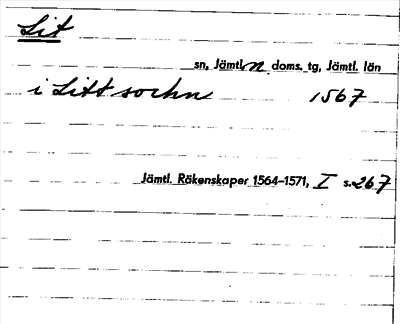 Lit
sn, Jämtl. n doms. tg, Jämtl. län
i Litt sochn 1567
Jämtl. Räkenskaper 1564–1571, I s. 267